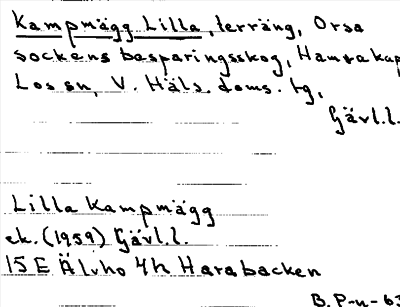 Kampmägg Lilla, terräng, Orsa
sockens besparingsskog, Hamra kap
Los sn, V. Häls. doms. tg,
Gävl.l.
Lilla Kampmägg
ek. (1959) Gävl.l.
15 E Älvho 4h Harabacken
B. P-n- 63